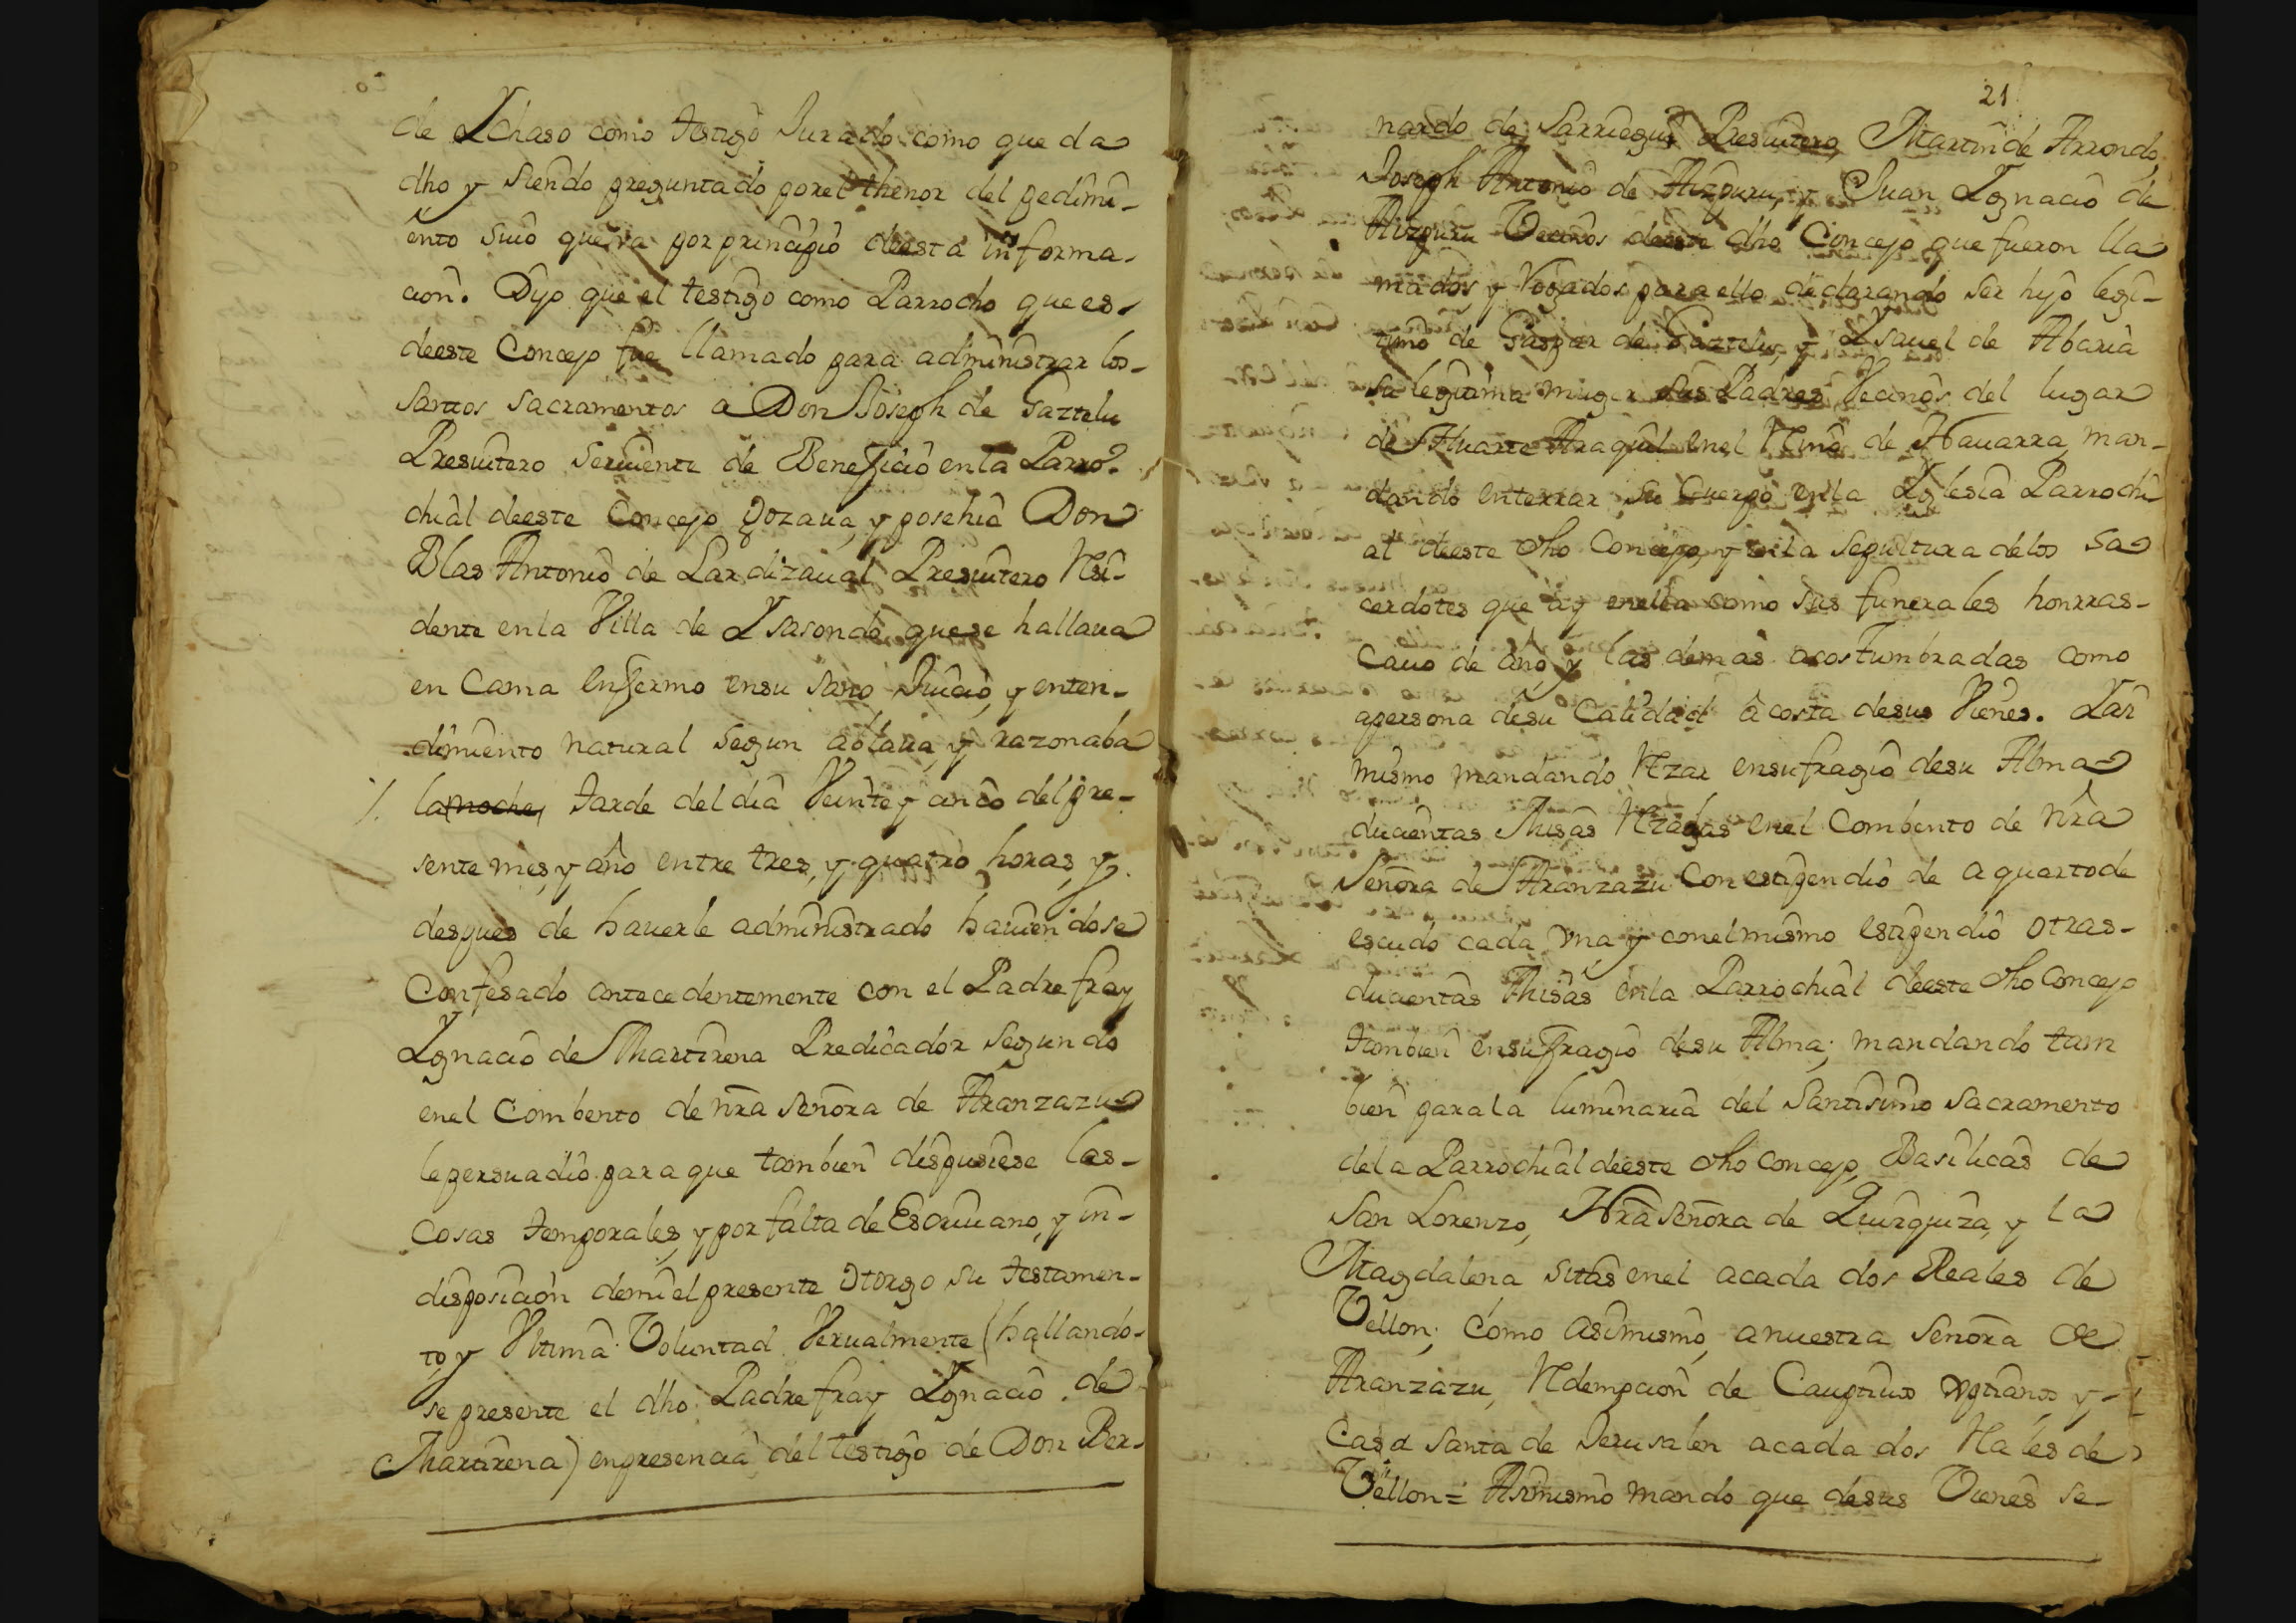 de Ychaso como testigo Jurado como que da
dho y siendo preguntado porel thenor del pedimi-
ento suio que va por principio deesta informa-
cion. Dijo que el testigo como Parrocho que es-
deeste Concejo fue llamado para administrar los-
santos sacramentos a Don Joseph de Gaztelu
Presuitero seruiente de Beneficio enla Parro-
chial deeste Concejo Gozaua, y posehia Don
Blas Antonio de Lardizaual Presuitero Resi-
dente enla Villa de Ysasondo quese hallaua
en Cama enfermo ensu sano Juicio, y enten-
dimiento natural segun ablaua, y razonaba
la noche, tarde del dia Veinte y cinco del pre-
sente mes, y año entre tres, y quatro horas, y
despues de hauerle administrado hauiendose
Confesado antecedentemente con el Padre fray
Ygnacio de Martirena Predicador Segundo
enel Combento de nra Señora de Aranzazu
le persuadio para que tambien dispusiese las-
Cosas temporales, y por falta de Escriuano, y in-
disposicion demi el presente Otorgo su testamen-
to, y Vltima Voluntad Verualmente (hallando-
se presente el dho Padre fray Ygnacio de
Martirena) enpresencia del testigo de Don Ber-
21
nardo de Sarriegui Presuitero, Martin de Arrondo,
Joseph Antonio de Aizpuru, y Juan Ygnacio de
Aizpuru Vecinos deeste dho Concejo que fueron lla
mados y Rogados para ello declarando ser hijo legi-
timo de Gaspar de Gaztelu, y Ysauel de Abaria
su legitima muger sus Padres, Vecinos del lugar
de Huarte Araquil enel Reino de Nauarra, man-
dando enterrar su Cuerpo enla Yglesia Parrochi
al deeste dho Concejo, y enla sepultura delos sa
cerdotes que ay enella como sus funerales honrras-
Cauo de año, y las demas acostumbradas como
apersona desu Calidad a costa desus Vienes. Y asi
mismo mandando Rezar ensufragio desu Alma
ducientas Misas Rezadas enel Combento de nra
Señora de Aranzazu Con estipendio de a quarto de
escudo cada vna y conel mismo estipendio otras-
ducientas Misas enla Parrochial deeste dho Concejo
tambien ensufragio desu Alma; mandando tam
bien parala luminaria del Santisimo Sacramento
dela Parrochial deeste dho Concejo, Basilicas de
San Lorenzo, Nra Señora de Quirquiza, y la
Magdalena sitas enel acada dos Reales de
Vellon; como asimismo, anuestra Señora de
Aranzazu, Redempcion de Cauptiuos xptianos y-
Casa santa de Jerusalen acada dos Rales de
Vellon= Asimismo mando que desus Vienes se-